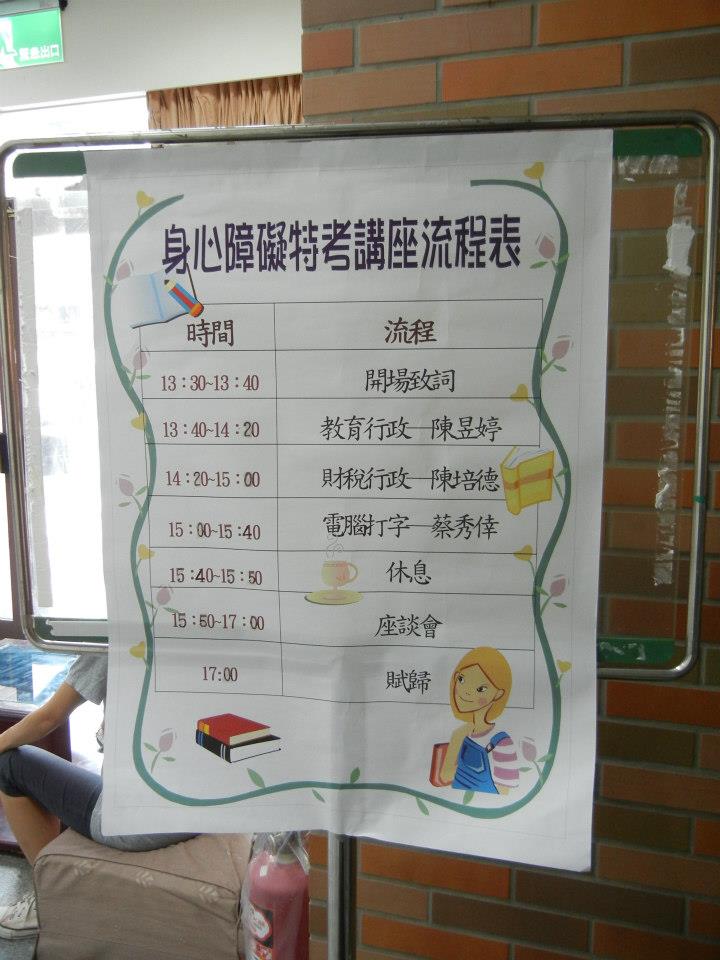 緊急出口
身心障礙特考講座流程表
時間 流程
13：30~13：40 開場致詞
13：40~14：20 教育行政—陳昱婷
14：20~15：00 財稅行政—陳培德
15：00~15：40 電腦打字—蔡秀倖
15：40~15：50 休息
15：50~17：00 座談會
17:00 賦歸